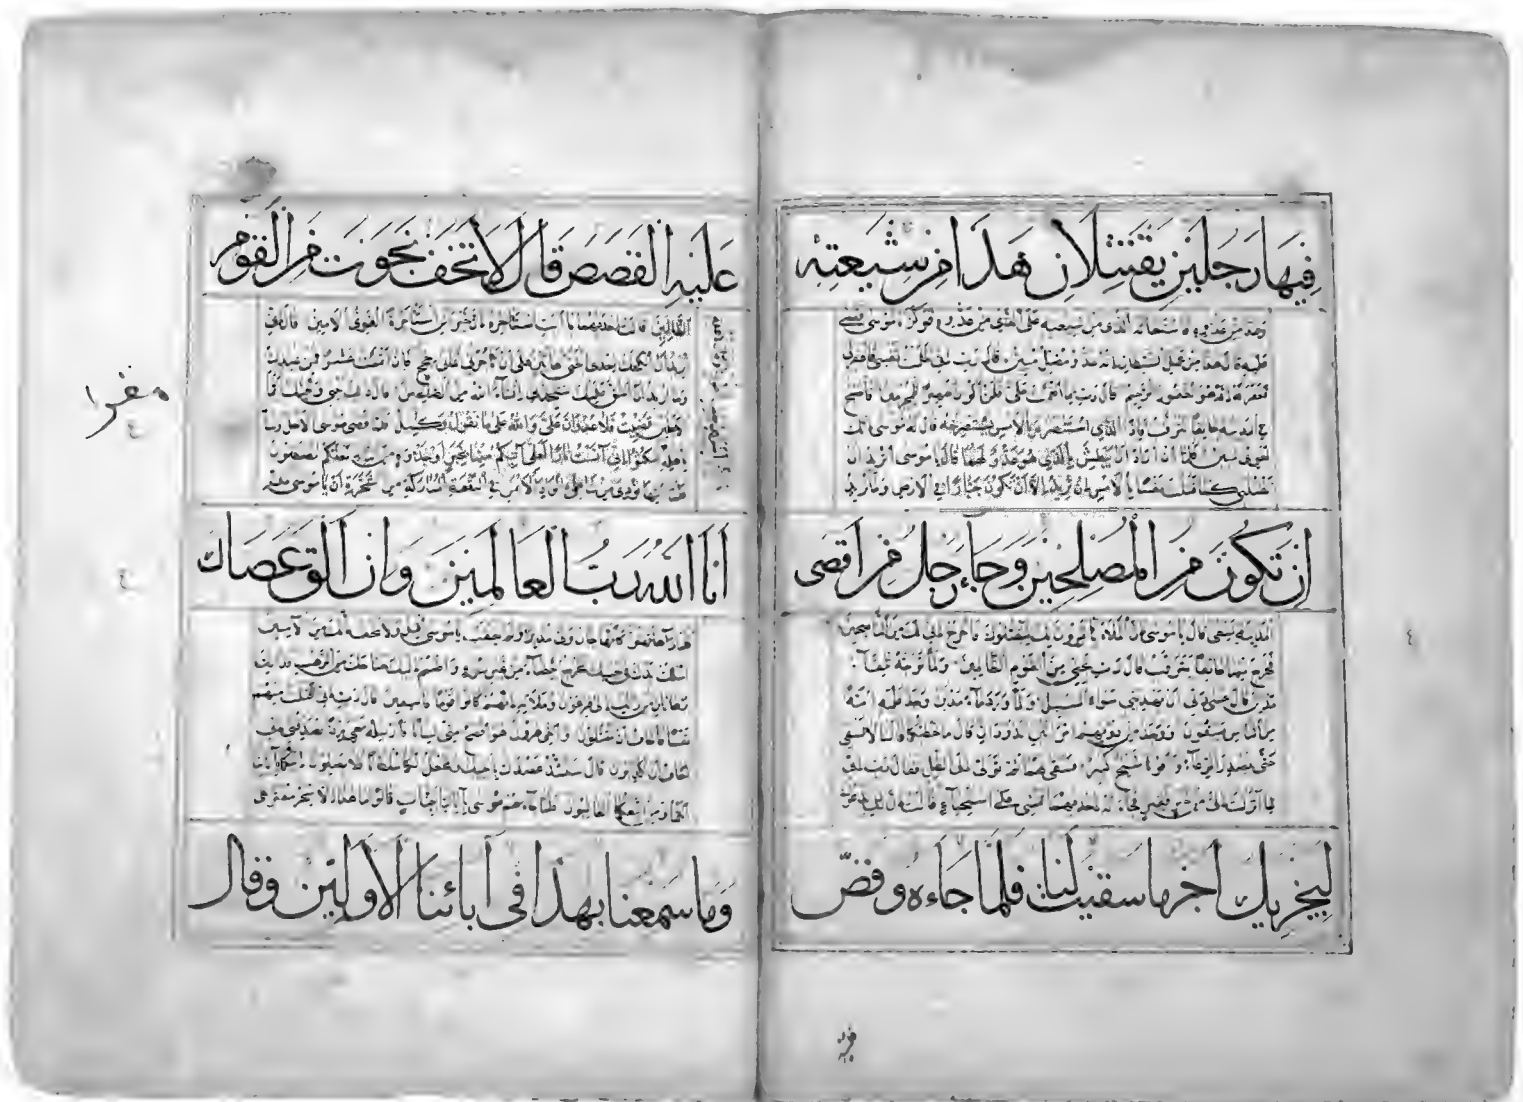 فِيهَا رَجُلَيْنِ يَقْتَتِلَانِ هَذَا مِنْ شِيعَتِهِ
وهذا من عدوه فاستغاثه الذي من شيعته على الذي من عدوه فوكزه موسى فقضى
عليه قال هذا من عمل الشيطان انه عدو مضل مبين قال رب اني ظلمت نفسي فاغفر لي
فغفر له انه هو الغفور الرحيم قال رب بما انعمت علي فلن اكون ظهيرا للمجرمين فاصبح
في المدينة خائفا يترقب فاذا الذي استنصره بالامس يستصرخه قال له موسى انك
لغوي مبين فلما ان اراد ان يبطش بالذي هو عدو لهما قال يا موسى اتريد ان
تقتلني كما قتلت نفسا بالامس ان تريد الا ان تكون جبارا في الارض وما تريد
اَنْ تَكُونَ مِنَ الْمُصْلِحِينَ وَجَاءَ رَجُلٌ مِنْ اَقْصَى
المدينة يسعى قال يا موسى ان الملأ يأتمرون بك ليقتلوك فاخرج اني لك من الناصحين
فخرج منها خائفا يترقب قال رب نجني من القوم الظالمين ولما توجه تلقاء
مدين قال عسى ربي ان يهديني سواء السبيل ولما ورد ماء مدين وجد عليه امة
من الناس يسقون ووجد من دونهم امرأتين تذودان قال ما خطبكما قالتا لا نسقي
حتى يصدر الرعاء وابونا شيخ كبير فسقى لهما ثم تولى الى الظل فقال رب اني
لما انزلت الي من خير فقير فجاءته احديهما تمشي على استحياء قالت ان ابي يدعوك
لِيَجْزِيَكَ اَجْرَ مَا سَقَيْتَ لَنَا فَلَمَّا جَاءَهُ وَقَصَّ
عَلَيْهِ الْقَصَصَ قَالَ لَا تَخَفْ نَجَوْتَ مِنَ الْقَوْمِ
الظالمين قالت احديهما يا ابت استأجره ان خير من استأجرت القوي الامين قال اني
اريد ان انكحك احدى ابنتي هاتين على ان تأجرني ثماني حجج فان اتممت عشرا فمن عندك
وما اريد ان اشق عليك ستجدني ان شاء الله من الصالحين قال ذلك بيني وبينك ايما
الاجلين قضيت فلا عدوان علي والله على ما نقول وكيل فلما قضى موسى الاجل وسار
امكثوا اني آنست نارا لعلي آتيكم منها بخبر او جذوة من النار لعلكم تصطلون
نودي من شاطئ الواد الايمن في البقعة المباركة من الشجرة ان يا موسى
اَنَا اللهُ رَبُّ الْعَالَمِينَ وَاَنْ اَلْقِ عَصَاكَ
فلما رآها تهتز كأنها جان ولى مدبرا ولم يعقب يا موسى اقبل ولا تخف انك من الآمنين
اسلك يدك في جيبك تخرج بيضاء من غير سوء واضمم اليك جناحك من الرهب فذانك
برهانان من ربك الى فرعون وملائه انهم كانوا قوما فاسقين قال رب اني قتلت منهم
نفسا فاخاف ان يقتلون واخي هرون هو افصح مني لسانا فارسله معي ردءا يصدقني اني
اخاف ان يكذبون قال سنشد عضدك باخيك ونجعل لكما سلطانا فلا يصلون اليكما بآياتنا
انتما ومن اتبعكما الغالبون فلما جاءهم موسى بآياتنا بينات قالوا ما هذا الا سحر مفترى
وَمَا سَمِعْنَا بِهَذَا فِى آبَائِنَا الْاَوَّلِينَ وَقَالَ